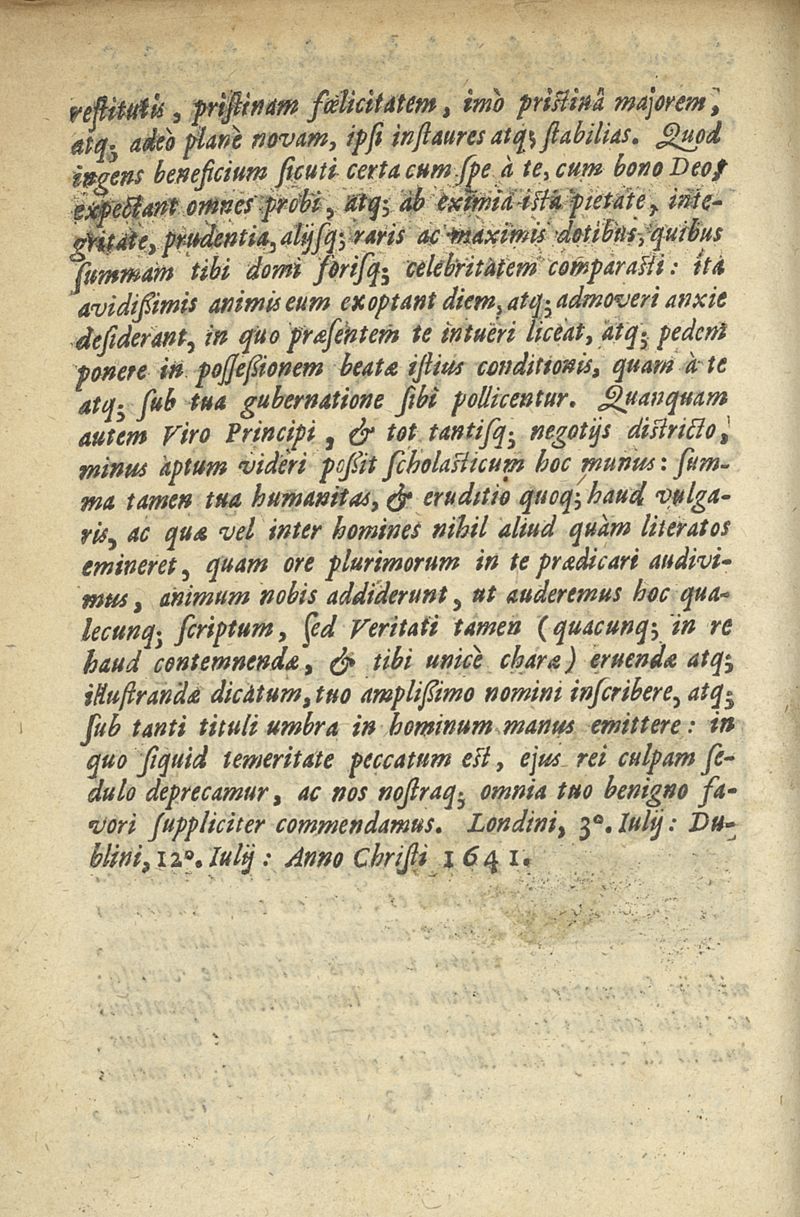 restitutis, pristinam fœlicitatem, imò pristinâ majorem,
atq; adeò planè novam, ipsi instaures atq; stabilias. Quod
ingens beneficium sicuti certa cum spe à te, cum bono Deo,
expectant omnes probi, atq; ab eximia ista pietate, inte-
gritate, prudentia, alijsq; raris ac maximis dotibus, quibus
summam tibi domi forisq; celebritatem comparasti: ita
avidißimis animis eum exoptant diem, atq; admoveri anxie
desiderant, in quo præsentem te intueri liceat, atq; pedem
ponere in posseßionem beatæ istius conditionis, quam à te
atq; sub tua gubernatione sibi pollicentur. Quanquam
autem Viro Principi, & tot tantisq; negotijs districto,
minus aptum videri poßit scholasticum hoc munus: sum-
ma tamen tua humanitas, & eruditio quoq; haud vulga-
ris, ac quæ vel inter homines nihil aliud quàm literatos
emineret, quam ore plurimorum in te prædicari audivi-
mus, animum nobis addiderunt, ut auderemus hoc qua-
lecunq; scriptum, sed Veritati tamen (quacunq; in re
haud contemnendæ, & tibi unicè charæ) eruendæ atq;
illustrandæ dicatum, tuo amplißimo nomini inscribere, atq;
sub tanti tituli umbra in hominum manus emittere: in
quo siquid temeritate peccatum est, ejus rei culpam se-
dulo deprecamur, ac nos nostraq; omnia tuo benigno fa-
vori suppliciter commendamus. Londini, 3º. Iulij: Du-
blini, 12º. Iulij: Anno Christi 1641.